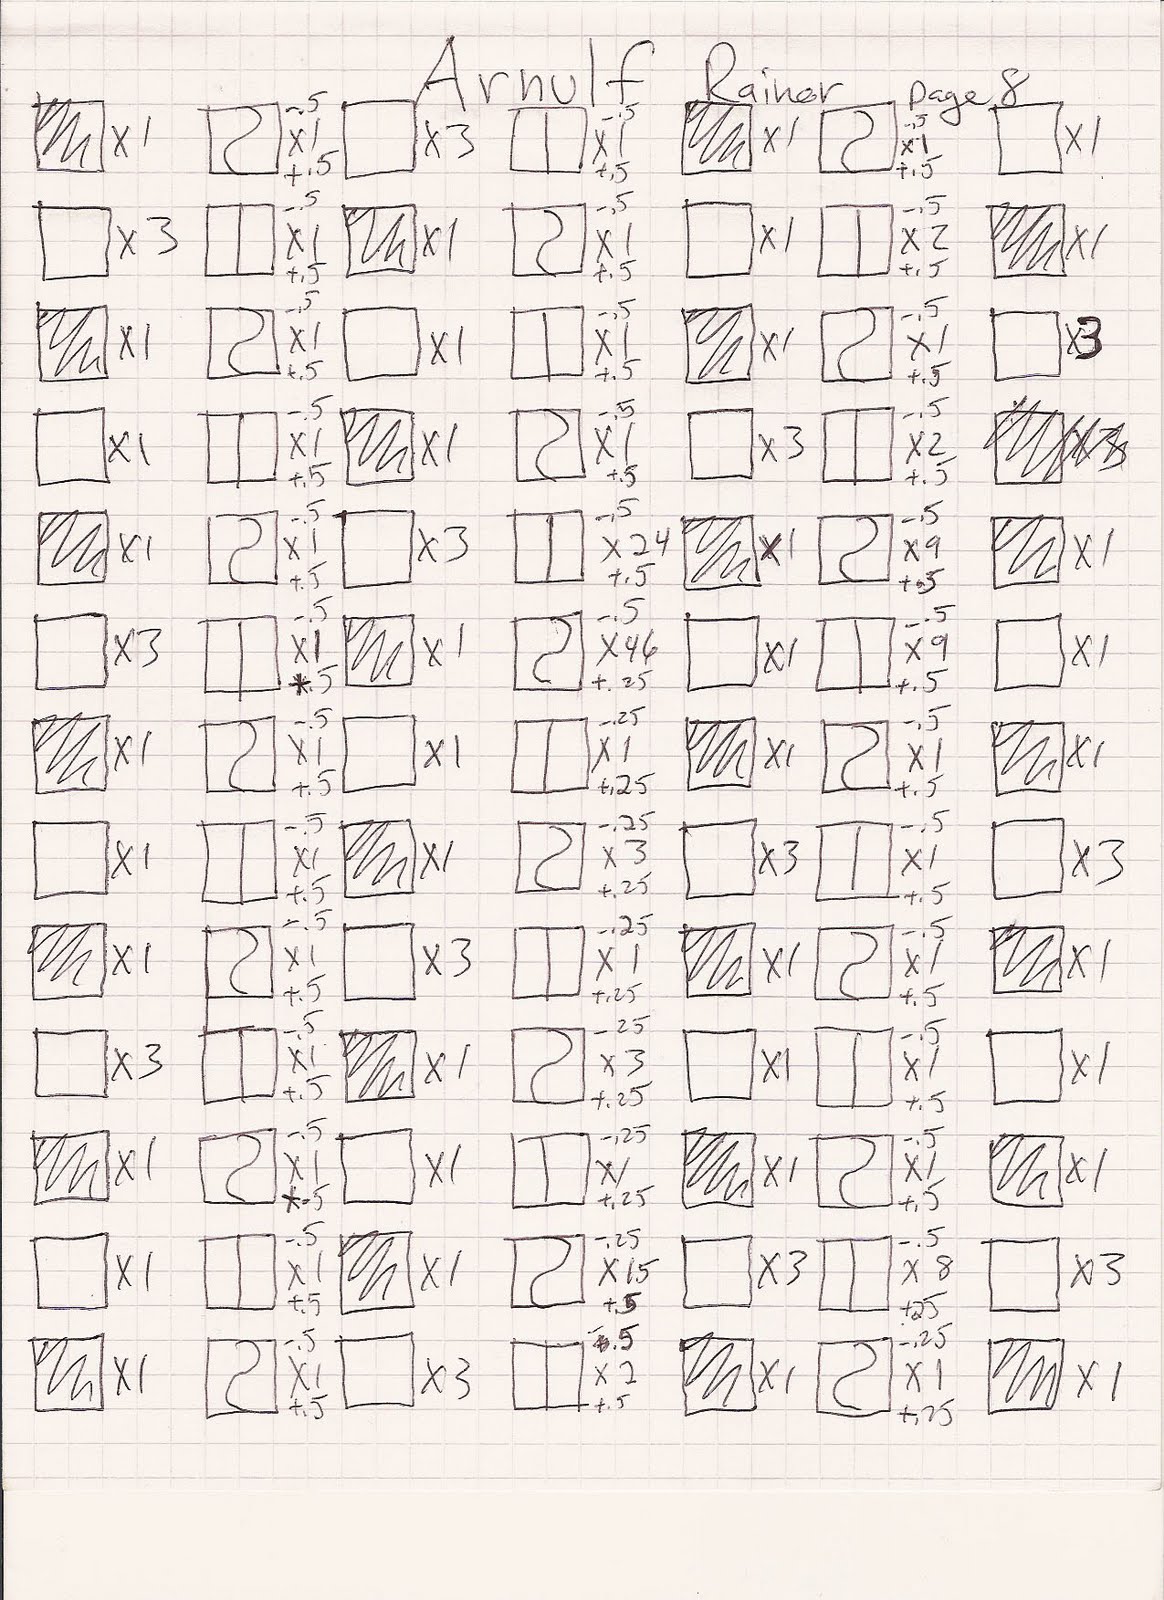 Arnulf Rainer page 8
-.5 -.5 -.5
X1 X1 X3 X1 X1 X1 X1
+.5 +.5 +.5
-.5 -.5 -.5
X3 X1 X1 X1 X1 X2 X1
+.5 +.5 +.5
-.5 -.5 -.5
X1 X1 X1 X1 X1 X1 X3
+.5 +.5 +.5
-.5 -.5 -.5
X1 X1 X1 X1 X3 X2
+.5 +.5 +.5
-.5 -.5 -.5
X1 X1 X3 X24 X1 X9 X1
+.5 +.5 +.5
-.5 -.5 -.5
X3 X1 X1 X46 X1 X9 X1
+.5 +.25 +.5
-.5 -.25 -.5
X1 X1 X1 X1 X1 X1 X1
+.5 +.25 +.5
-.5 -.25 -.5
X1 X1 X1 X3 X3 X1 X3
+.5 +.25 +.5
-.5 -.25 -.5
X1 X1 X3 X1 X1 X1 X1
+.5 +.25 +.5
-.5 -.25 -.5
X3 X1 X1 X3 X1 X1 X1
+.5 +.25 +.5
-.5 -.25 -.5
X1 X1 X1 X1 X1 X1 X1
+.5 +.25 +.5
-.5 -.25 -.5
X1 X1 X1 X15 X3 X8 X3
+.5 +.5 +.25
-.5 -.5 -.25
X1 X1 X3 X2 X1 X1 X1
+.5 +.5 +.25